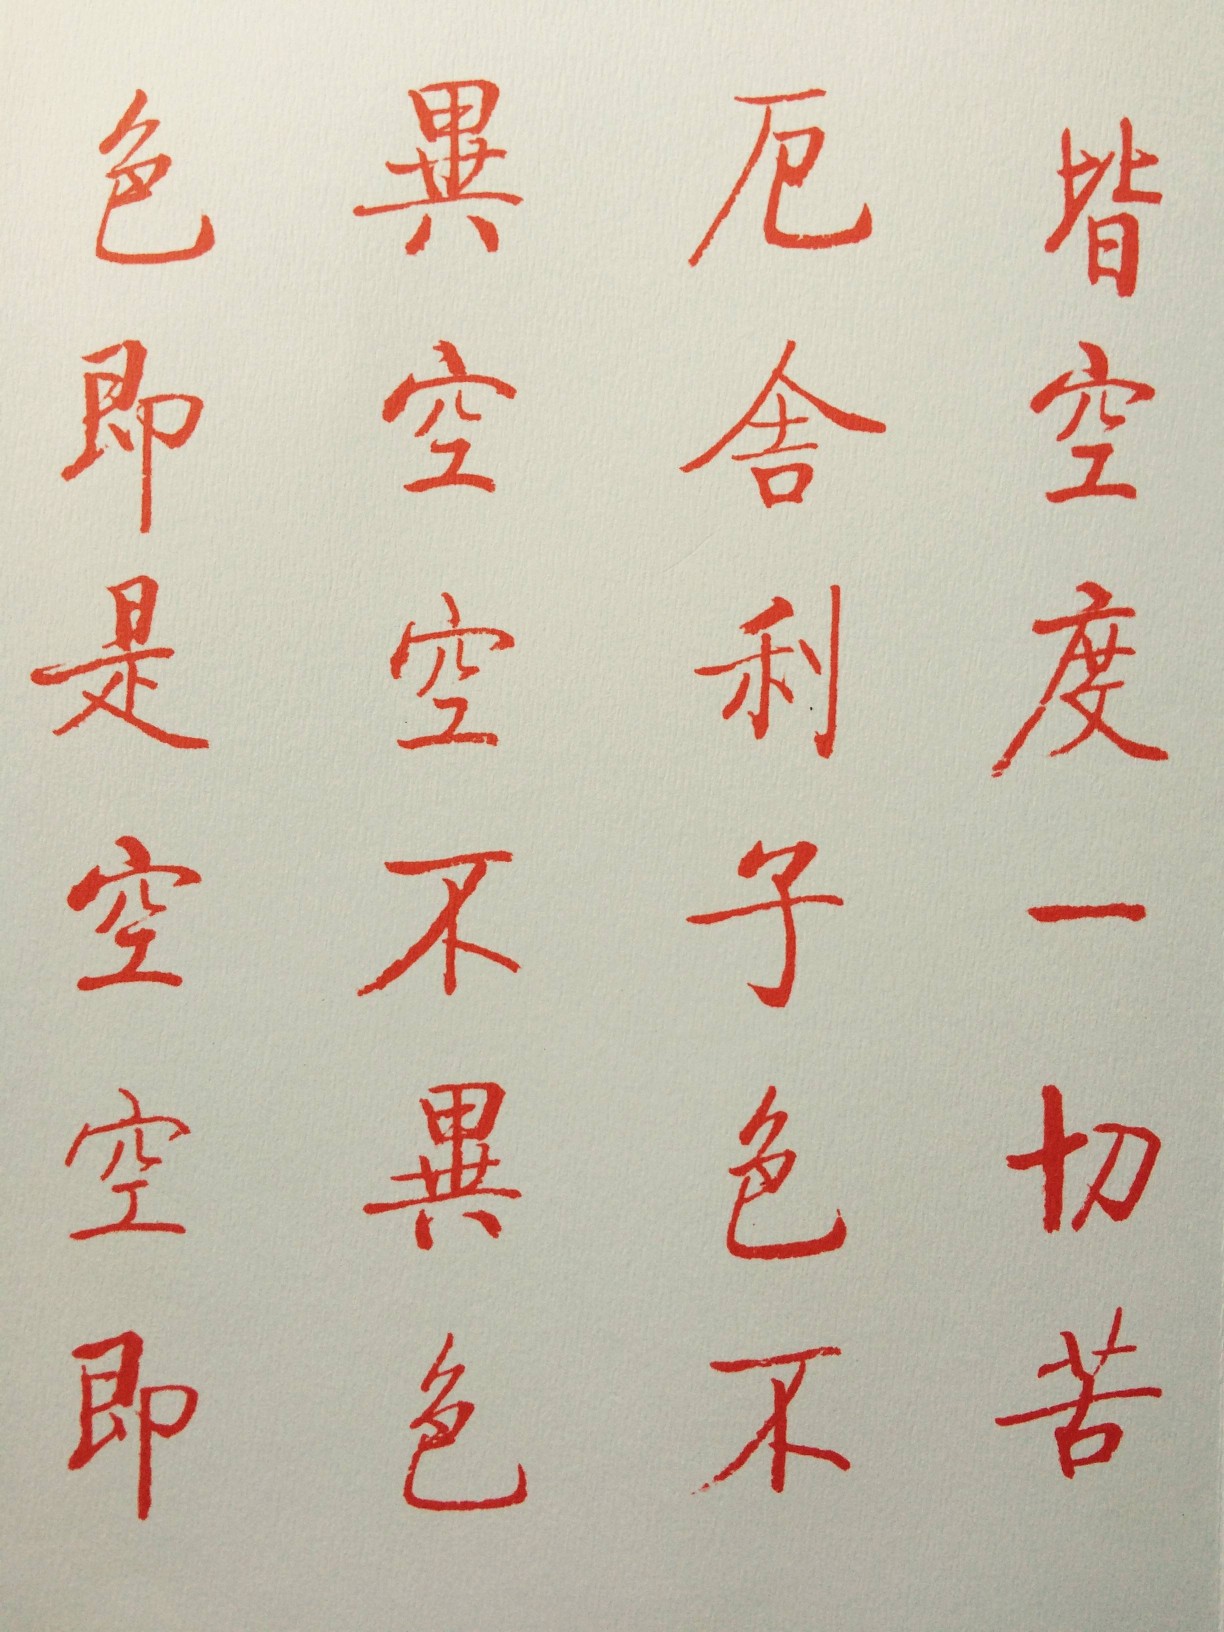 皆空度一切苦
厄舎利子色不
異空空不異色
色即是空空即